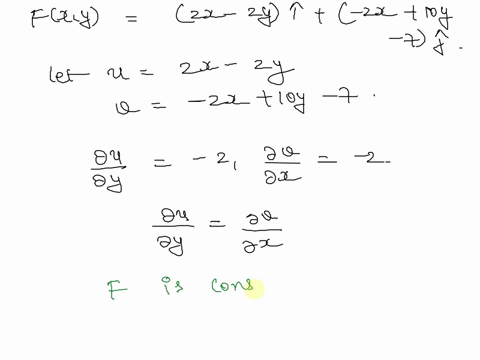 F(x,y) = (2x - 2y) î + (-2x + 10y
-7) ĵ.
let u = 2x - 2y
v = -2x + 10y - 7.
∂u/∂y = -2, ∂v/∂x = -2.
∂u/∂y = ∂v/∂x
F is cons